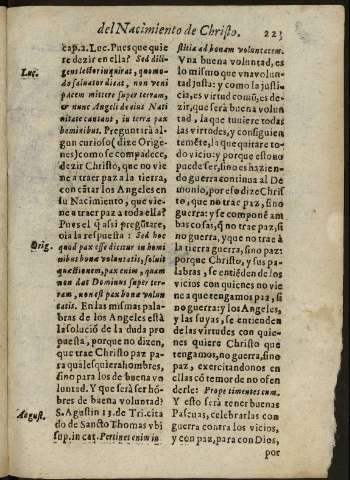 del Nacimiento de Christo. 223
cap. 2. Luc. Pues que quie
re dezir en ella? Sed dili-
gens lector inquirat, quomo-
do saluator dicat, non veni
pacem mittere super terram,
& nunc Angeli de eius Nati
uitate cantant, in terra pax
hominibus. Preguntarà al-
gun curioso (dize Orige-
nes) como se compadece,
dezir Christo, que no vie
ne a traer paz a la tierra,
con cãtar los Angeles en
su Nacimiento, que vie-
ne a traer paz a toda ella?
Pues el q̃ assi pregũtare,
oia la respuesta: Sed hoc
quod pax esse dicitur in homi
nibus bonæ voluntatis, soluit
quæstionem, pax enim, quam
non dat Dominus super ter-
ram, non est pax bonæ volun
tatis. En las mismas pala-
bras de los Angeles està
la solució de la duda pro
puesta, porque no dizen,
que trae Christo paz pa-
ra qualesquiera hombres,
sino para los de buena vo
luntad. Y que serà ser hõ-
bres de buena voluntad?
S. Agustin 13. de Tri. cita
do de Sancto Thomas vbi
sup. in cat. Pertinet enim iu
Luc.
Orig.
August.
stitia ad bonam voluntatem.
Vna buena voluntad, es
lo mismo que vna volun-
tad justa: y como la justi-
cia, es virtud comũ, es de-
zir, que serà buena volun
tad, la que tuuiere todas
las virtudes, y consiguien
temẽte, la que quitare to-
do vicio: y porque esto no
puede ser, sino es hazien-
do guerra continua al De
monio, por esso dize Chris
to, que no trae paz, sino
guerra: y se componẽ am
bas cosas, q̃ no trae paz, si
no guerra, y que no trae à
la tierra guerra, sino paz:
porque Christo, y sus pa-
labras, se entiẽden de los
vicios con quienes no vie
ne a que tengamos paz, si
no guerra: y los Angeles,
y las suyas, se entienden
de las virtudes con quie-
nes quiere Christo que
tengamos, no guerra, sino
paz, exercitandonos en
ellas cõ temor de no ofen
derle: Prope timentes eum.
Y esto serà tener buenas
Pascuas, celebrarlas con
guerra contra los vicios,
y con paz, para con Dios,
por